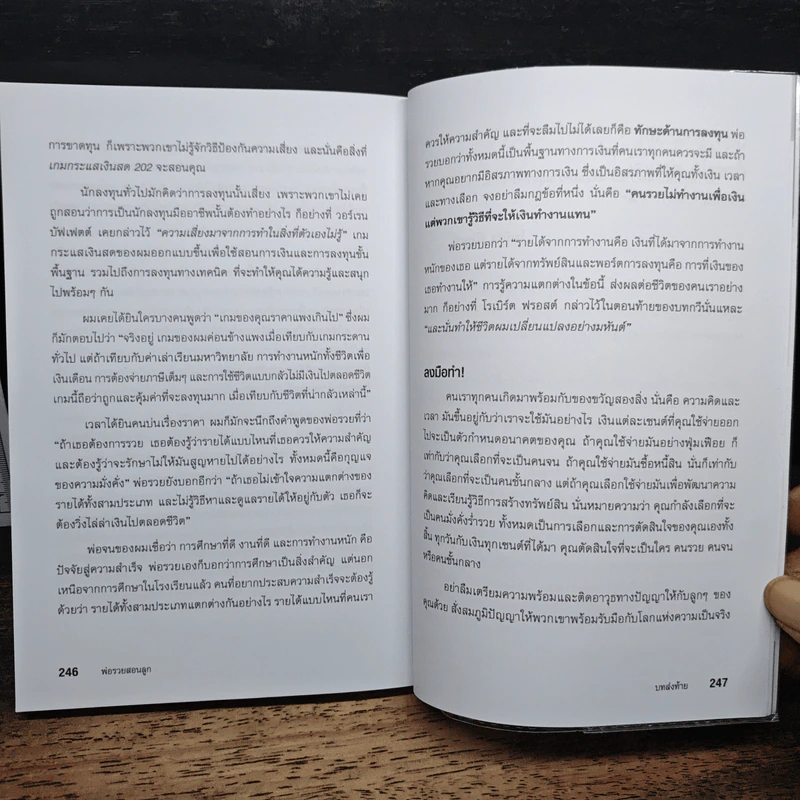 การขาดทุน ก็เพราะพวกเขาไม่รู้จักวิธีป้องกันความเสี่ยง และนั่นคือสิ่งที่
เกมกระแสเงินสด 202 จะสอนคุณ
นักลงทุนทั่วไปมักคิดว่าการลงทุนนั้นเสี่ยง เพราะพวกเขาไม่เคย
ถูกสอนว่าการเป็นนักลงทุนมืออาชีพนั้นต้องทำอย่างไร ก็อย่างที่ วอร์เรน
บัฟเฟตต์ เคยกล่าวไว้ "ความเสี่ยงมาจากการทำในสิ่งที่ตัวเองไม่รู้" เกม
กระแสเงินสดของผมออกแบบขึ้นเพื่อใช้สอนการเงินและการลงทุนขั้น
พื้นฐาน รวมไปถึงการลงทุนทางเทคนิค ที่จะทำให้คุณได้ความรู้และสนุก
ไปพร้อมๆ กัน
ผมเคยได้ยินใครบางคนพูดว่า "เกมของคุณราคาแพงเกินไป" ซึ่งผม
ก็มักตอบไปว่า "จริงอยู่ เกมของผมค่อนข้างแพงเมื่อเทียบกับเกมกระดาน
ทั่วไป แต่ถ้าเทียบกับค่าเล่าเรียนมหาวิทยาลัย การทำงานหนักทั้งชีวิตเพื่อ
เงินเดือน การต้องจ่ายภาษีเต็มๆ และการใช้ชีวิตแบบกลัวไม่มีเงินไปตลอดชีวิต
เกมนี้ถือว่าถูกและคุ้มค่าที่จะลงทุนมาก เมื่อเทียบกับชีวิตที่น่ากลัวเหล่านี้"
เวลาได้ยินคนบ่นเรื่องราคา ผมก็มักจะนึกถึงคำพูดของพ่อรวยที่ว่า
"ถ้าเธอต้องการรวย เธอต้องรู้ว่ารายได้แบบไหนที่เธอควรให้ความสำคัญ
และต้องรู้ว่าจะรักษาไม่ให้มันสูญหายไปได้อย่างไร ทั้งหมดนี้คือกุญแจ
ของความมั่งคั่ง" พ่อรวยยังบอกอีกว่า "ถ้าเธอไม่เข้าใจความแตกต่างของ
รายได้ทั้งสามประเภท และไม่รู้วิธีหาและดูแลรายได้ให้อยู่กับตัว เธอก็จะ
ต้องวิ่งไล่ล่าเงินไปตลอดชีวิต"
พ่อจนของผมเชื่อว่า การศึกษาที่ดี งานที่ดี และการทำงานหนัก คือ
ปัจจัยสู่ความสำเร็จ พ่อรวยเองก็บอกว่าการศึกษาเป็นสิ่งสำคัญ แต่นอก
เหนือจากการศึกษาในโรงเรียนแล้ว คนที่อยากประสบความสำเร็จจะต้องรู้
ด้วยว่า รายได้ทั้งสามประเภทแตกต่างกันอย่างไร รายได้แบบไหนที่คนเรา
246 พ่อรวยสอนลูก
ควรให้ความสำคัญ และที่จะลืมไปไม่ได้เลยก็คือ ทักษะด้านการลงทุน พ่อ
รวยบอกว่าทั้งหมดนี้เป็นพื้นฐานทางการเงินที่คนเราทุกคนควรจะมี และถ้า
หากคุณอยากมีอิสรภาพทางการเงิน ซึ่งเป็นอิสรภาพที่ให้คุณทั้งเงิน เวลา
และทางเลือก จงอย่าลืมกฎข้อที่หนึ่ง นั่นคือ "คนรวยไม่ทำงานเพื่อเงิน
แต่พวกเขารู้วิธีที่จะให้เงินทำงานแทน"
พ่อรวยบอกว่า "รายได้จากการทำงานคือ เงินที่ได้มาจากการทำงาน
หนักของเธอ แต่รายได้จากทรัพย์สินและพอร์ตการลงทุนคือ การที่เงินของ
เธอทำงานให้" การรู้ความแตกต่างในข้อนี้ ส่งผลต่อชีวิตของคนเราอย่าง
มาก ก็อย่างที่ โรเบิร์ต ฟรอสต์ กล่าวไว้ในตอนท้ายของบทกวีนั่นแหละ
"และนั่นทำให้ชีวิตผมเปลี่ยนแปลงอย่างมหันต์"
ลงมือทำ!
คนเราทุกคนเกิดมาพร้อมกับของขวัญสองสิ่ง นั่นคือ ความคิดและ
เวลา มันขึ้นอยู่กับว่าเราจะใช้มันอย่างไร เงินแต่ละเซนต์ที่คุณใช้จ่ายออก
ไปจะเป็นตัวกำหนดอนาคตของคุณ ถ้าคุณใช้จ่ายมันอย่างฟุ่มเฟือย ก็
เท่ากับว่าคุณเลือกที่จะเป็นคนจน ถ้าคุณใช้จ่ายมันซื้อหนี้สิน นั่นก็เท่ากับ
ว่าคุณเลือกที่จะเป็นคนชั้นกลาง แต่ถ้าคุณเลือกใช้จ่ายมันเพื่อพัฒนาความ
คิดและเรียนรู้วิธีการสร้างทรัพย์สิน นั่นหมายความว่า คุณกำลังเลือกที่จะ
เป็นคนมั่งคั่งร่ำรวย ทั้งหมดเป็นการเลือกและการตัดสินใจของคุณเองทั้ง
สิ้น ทุกวันกับเงินทุกเซนต์ที่ได้มา คุณตัดสินใจที่จะเป็นใคร คนรวย คนจน
หรือคนชั้นกลาง
อย่าลืมเตรียมความพร้อมและติดอาวุธทางปัญญาให้กับลูกๆ ของ
คุณด้วย สั่งสมภูมิปัญญาให้พวกเขาพร้อมรับมือกับโลกแห่งความเป็นจริง
บทส่งท้าย 247